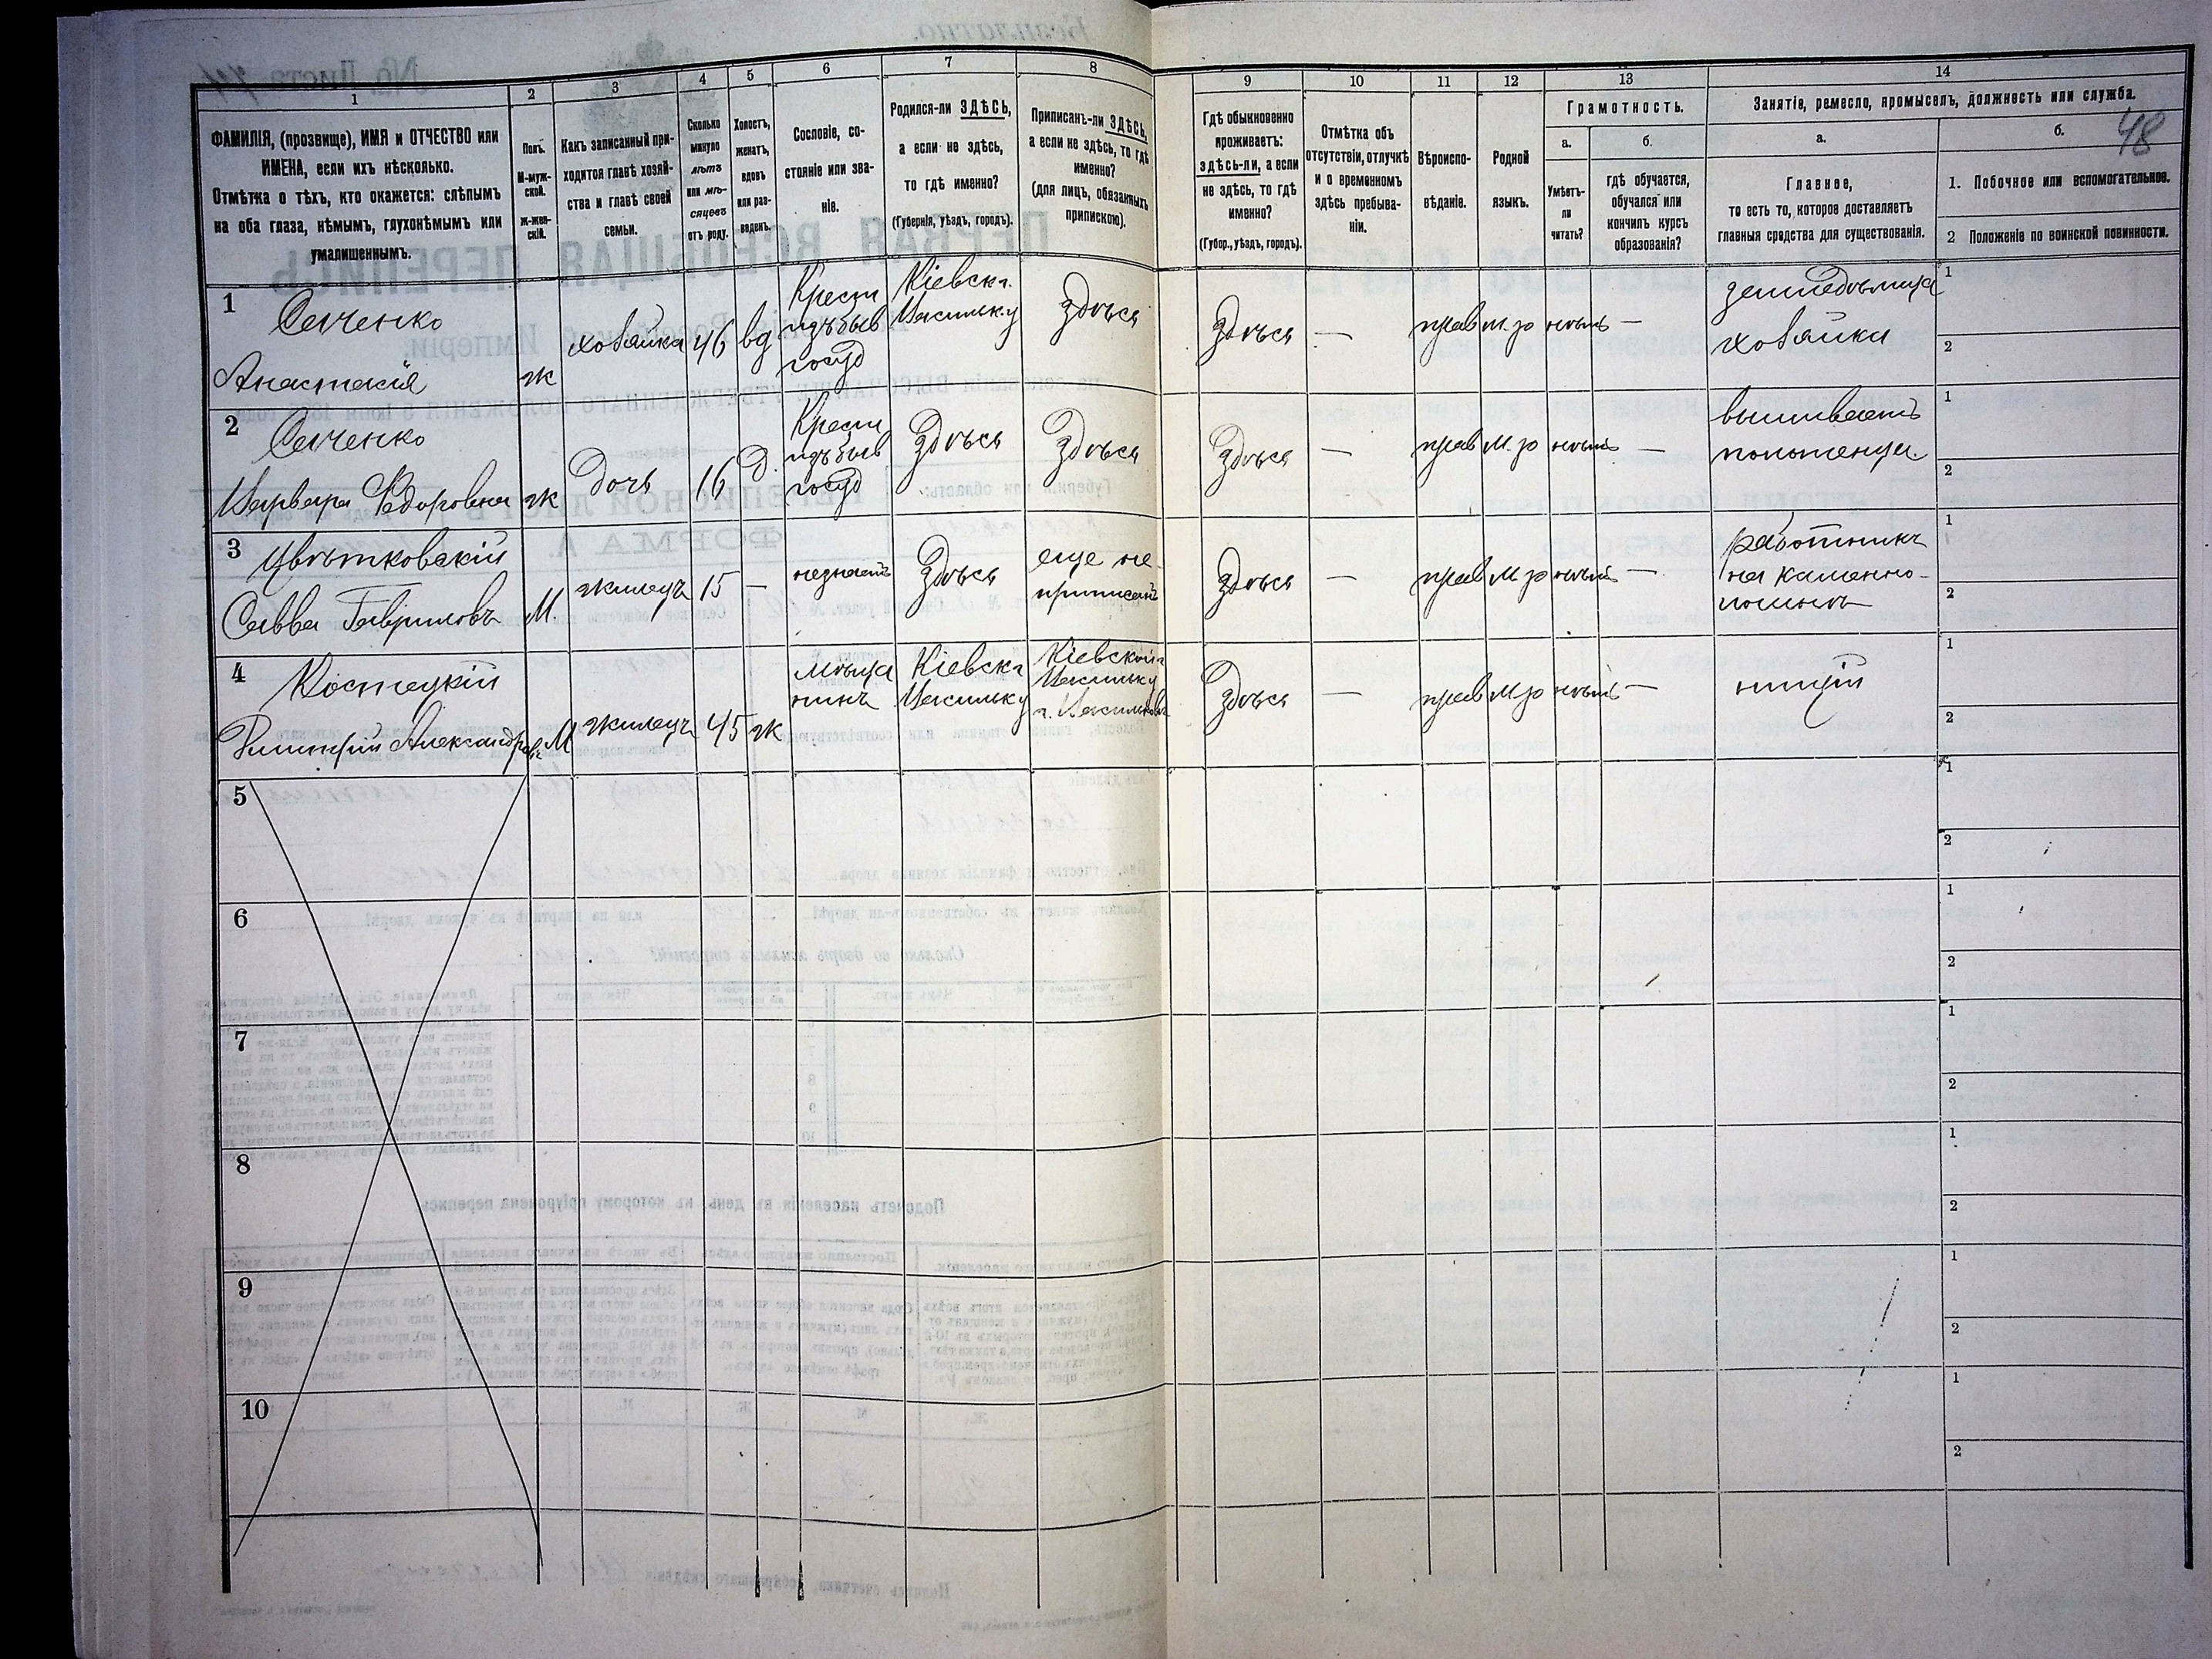 48
1 2 3 4 5 6 7 8 9 10 11 12 13 14
ФАМИЛІЯ, (прозвище), ИМЯ и ОТЧЕСТВО или
ИМЕНА, если ихъ нѣсколько.
Отмѣтка о тѣхъ, кто окажется: слѣпымъ
на оба глаза, нѣмымъ, глухонѣмымъ или
умалишеннымъ.
Полъ.
М-муж-
ской.
Ж-жен-
скій.
Какъ записанный при-
ходится главѣ хозяй-
ства и главѣ своей
семьи.
Сколько
минуло
лѣтъ
или мѣ-
сяцевъ
отъ роду.
Холостъ,
женатъ,
вдовъ
или раз-
веденъ.
Сословіе, со-
стояніе или зва-
ніе.
Родился-ли ЗДѢСЬ,
а если не здѣсь,
то гдѣ именно?
(Губернія, уѣздъ, городъ).
Приписанъ-ли ЗДѢСЬ,
а если не здѣсь, то гдѣ
именно?
(для лицъ, обязанныхъ
припискою).
Гдѣ обыкновенно
проживаетъ:
здѣсь-ли, а если
не здѣсь, то гдѣ
именно?
(Губер., уѣздъ, городъ).
Отмѣтка объ
отсутствіи, отлучкѣ
и о временномъ
здѣсь пребыва-
ніи.
Вѣроиспо-
вѣданіе.
Родной
языкъ.
Грамотность.
а.
Умѣетъ-
ли
читать?
б.
гдѣ обучается,
обучался или
кончилъ курсъ
образованія?
Занятіе, ремесло, промыселъ, должность или служба.
а.
Главное,
то есть то, которое доставляетъ
главныя средства для существованія.
б.
1. Побочное или вспомогательное.
2 Положеніе по воинской повинности.
1
Сенченко
Анастасія
ж
хозяйка
46
вд
Крест
изъ быв
госуд
Кіевск г.
Васильк. у
Здѣсь
Здѣсь
—
прав
м. р
нѣтъ
—
земледѣлица
хозяйка
1
2
2
Сенченко
Варвара Федоровна
ж
Дочь
16
Д.
Крест
изъ быв
госуд
Здѣсь
Здѣсь
Здѣсь
—
прав
м. р
нѣтъ
—
вышиваетъ
полотенца.
1
2
3
Цвѣтковскій
Савва Гавриловъ
М.
жилецъ
15
—
незнаетъ
Здѣсь
еще не
приписанъ
Здѣсь
—
прав
м р
нѣтъ
—
работникъ
на каменно-
ломнѣ
1
2
4
Костецкій
Димитрій Александровъ
М
жилецъ
45
ж
мѣща
нинъ
Кіевск г
Васильк у
Кіевской г
Васильк у
г. Васильковъ
Здѣсь
—
прав
м р
нѣтъ
—
нищій
1
2
5
1
2
6
1
2
7
1
2
8
1
2
9
1
2
10
1
2